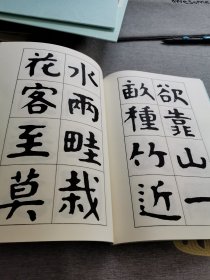 欲靠山一
畝種竹近
水兩畦栽
花客至莫